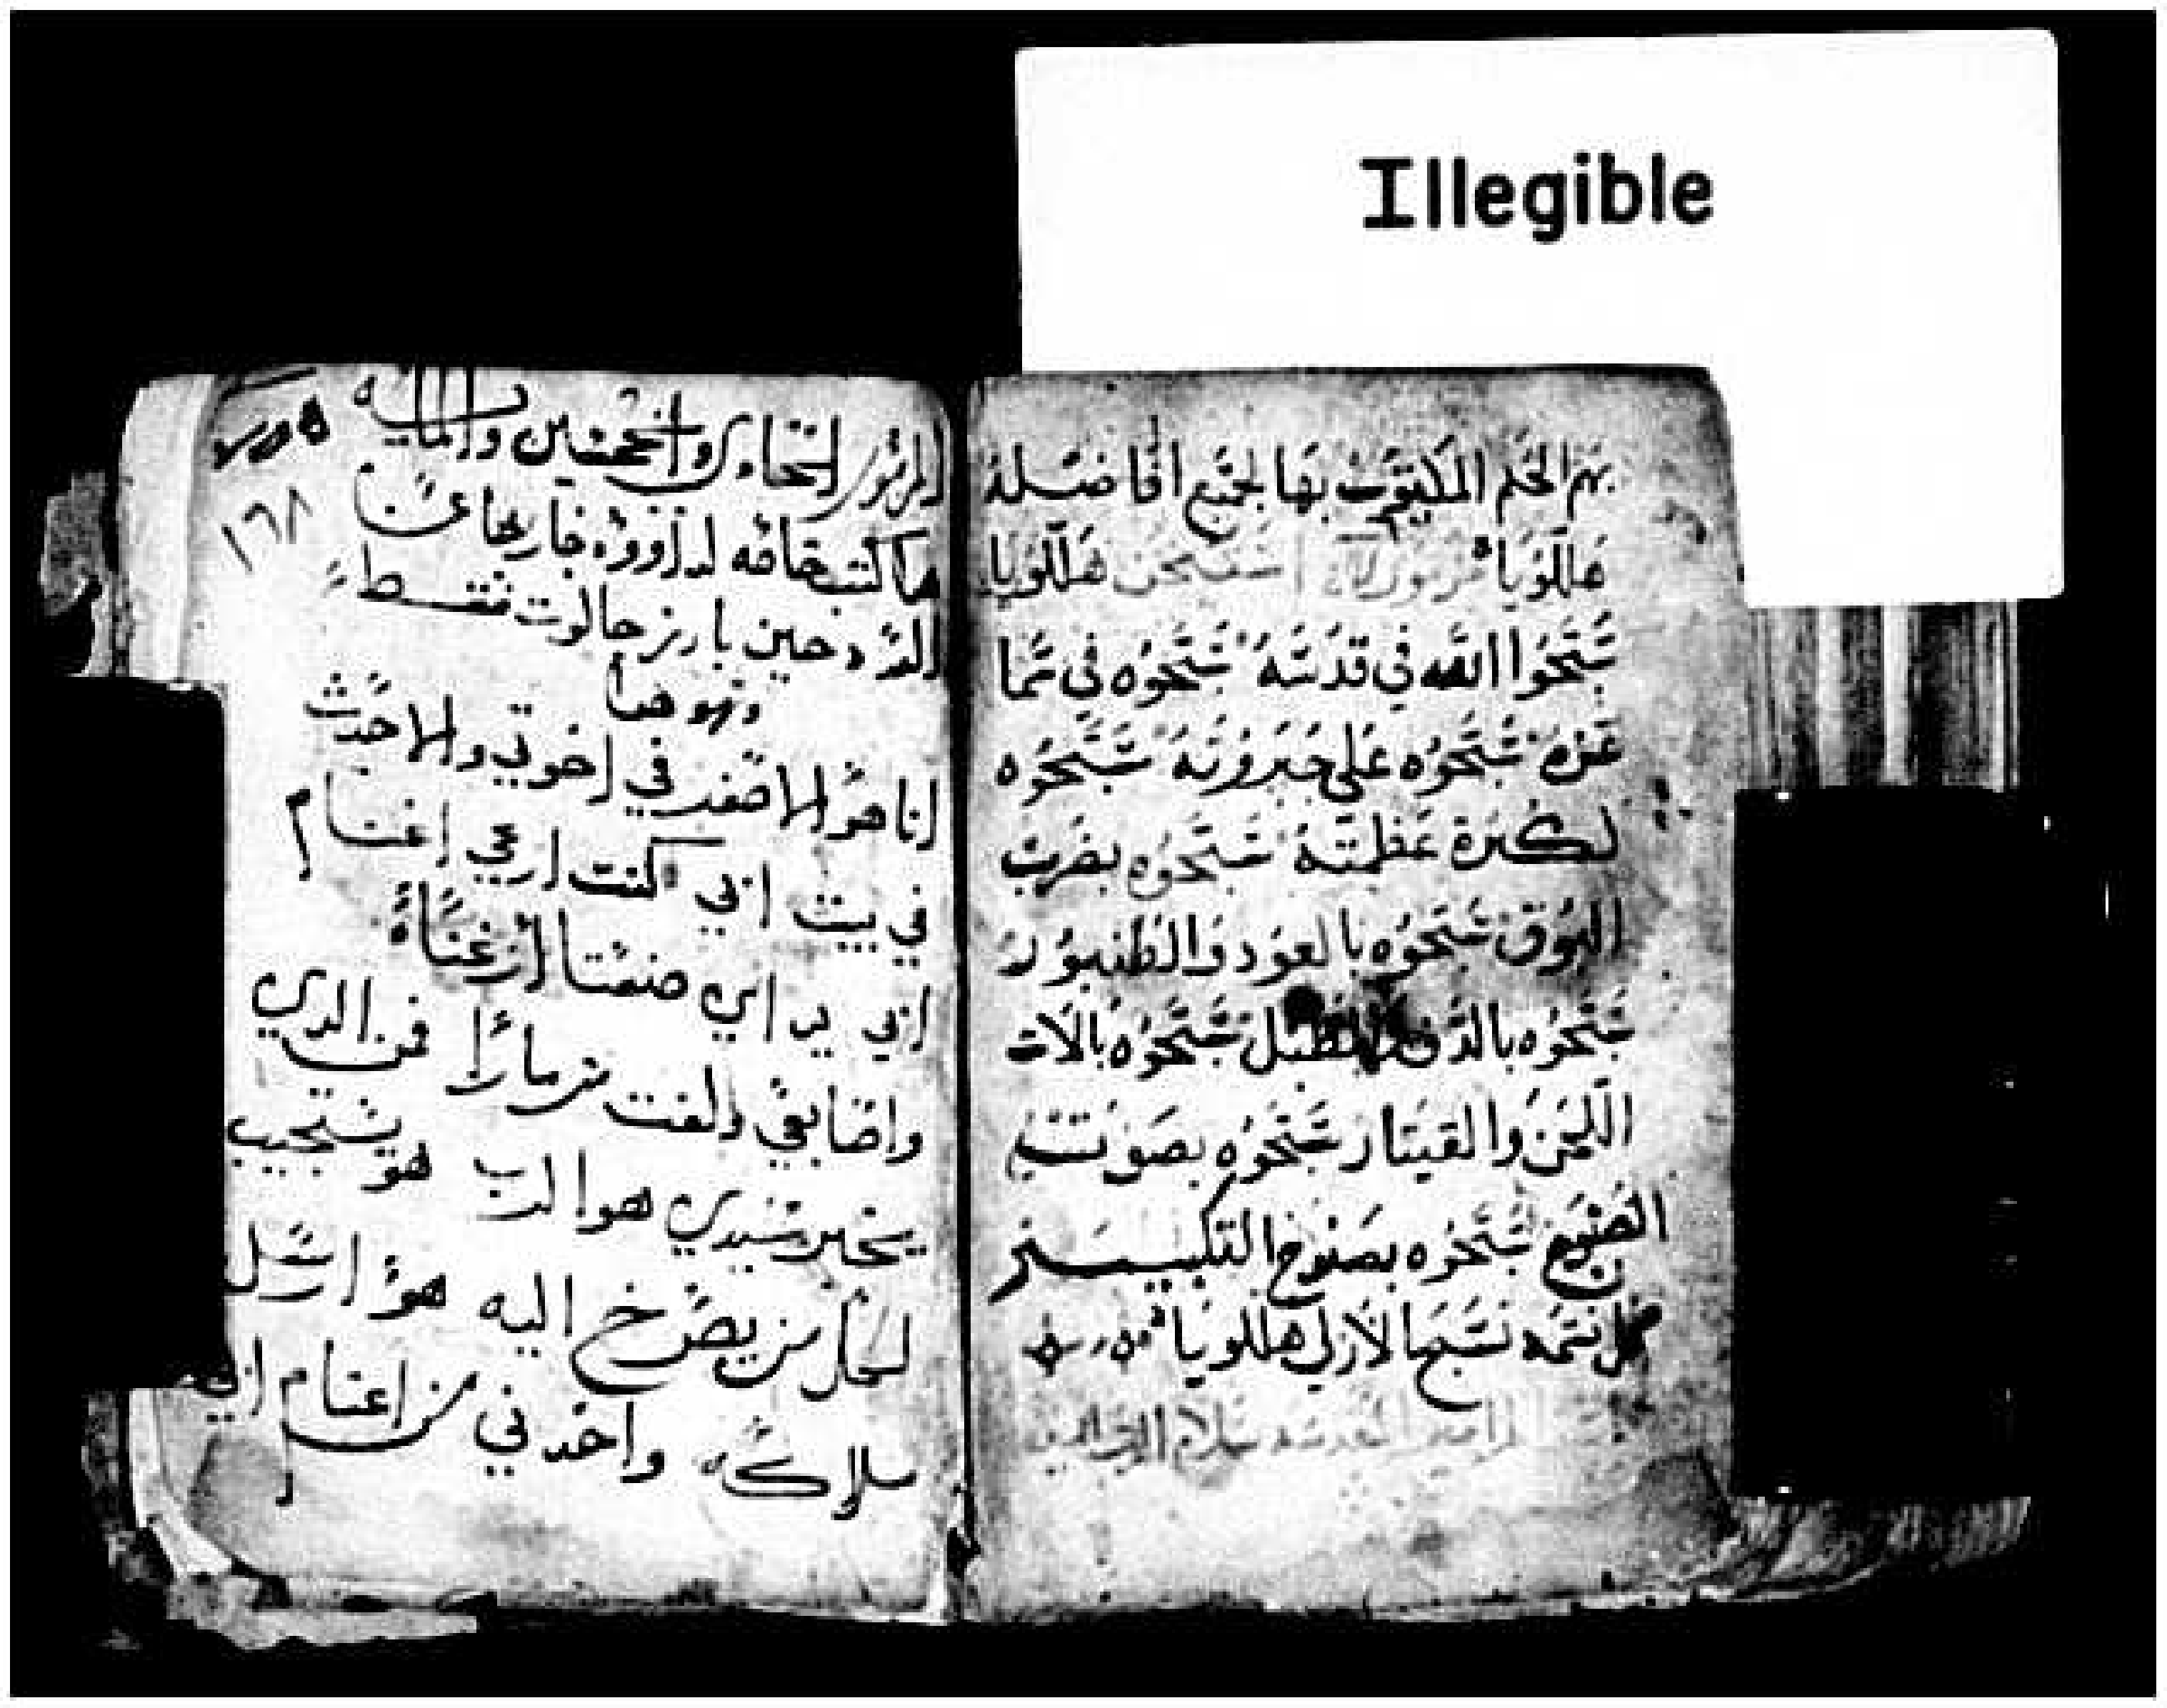 Illegible
بهم الحكم المكتوب بها لجميع افاضله
هاللويا مزمور استفتحن هاللويا
سبّحوا الله في قدسه سبّحوه في سما
عزه سبّحوه على جبروته سبّحوه
لكثرة عظمته سبّحوه بضرب
البوق سبّحوه بالعود والطنبور
سبّحوه بالدف والطبل سبّحوه بالات
اللحن والقيتار سبّحوه بصوت
الصنوج سبّحوه بصنوج التكبير
كل نسمه تسبح الازلي هللويا
سلام الرب امين
المزمور الحادي والخمسين والمايه
١٦٨
هذا كتب خاصه لداوود خارجا عن
العدد حين بارز جالوت فقط
وهو هذا
انا هو الاصغر في اخوتي والاحدث
في بيت ابي كنت ارعى اغنام
ابي يداي صنعتا ارغنًا
واصابعي الفت مزمارًا فمن الذي
يخبر سيدي هو الرب هو يستجيب
لكل من يصرخ اليه هو ارسل
ملاكه واخدني من اغنام ابي